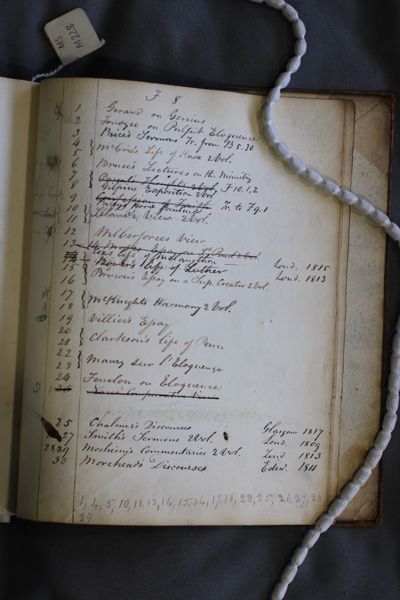 MS
M228
F 8
1 Gerard on Genius
2 Fordyce on Pulpit Eloquence
3 Price's Sermons Tr. from B 5.30
4 McCrie's Life of Knox 2 Vol.
5
6 Bruce's Lectures on the Ministry
7 2 Vol. F 10.1,2
8 Gilpins Exposition 2 Vol
9 Tr. to F 9.1
10
11 Leland's View 2 Vol.
12 Wilberforces View
13
14 Cox's life of Melancthon Lond. 1815
15 Bower's life of Luther Lond. 1813
16 Brown's Essay on a Sup. Creator 2 Vol.
17
18 McKnights Harmony 2 Vol.
19 Villier's Essay
20
21 Clarkson's life of Penn
22
23 Maury sur l'Eloquence
24 Fenelon on Eloquence
25
25 Chalmer's Discourses Glasgow 1817
27 Smith's Sermons 2 Vol. Lond. 1809
28,29 Mosheim's Commentaries 2 Vol. Lond 1813
30 Morehead's Discourses Edin. 1811
1, 4, 5, 10, 11, 13, 14, 15, 16, 17, 18, 23, 25, 26, 27, 28
29